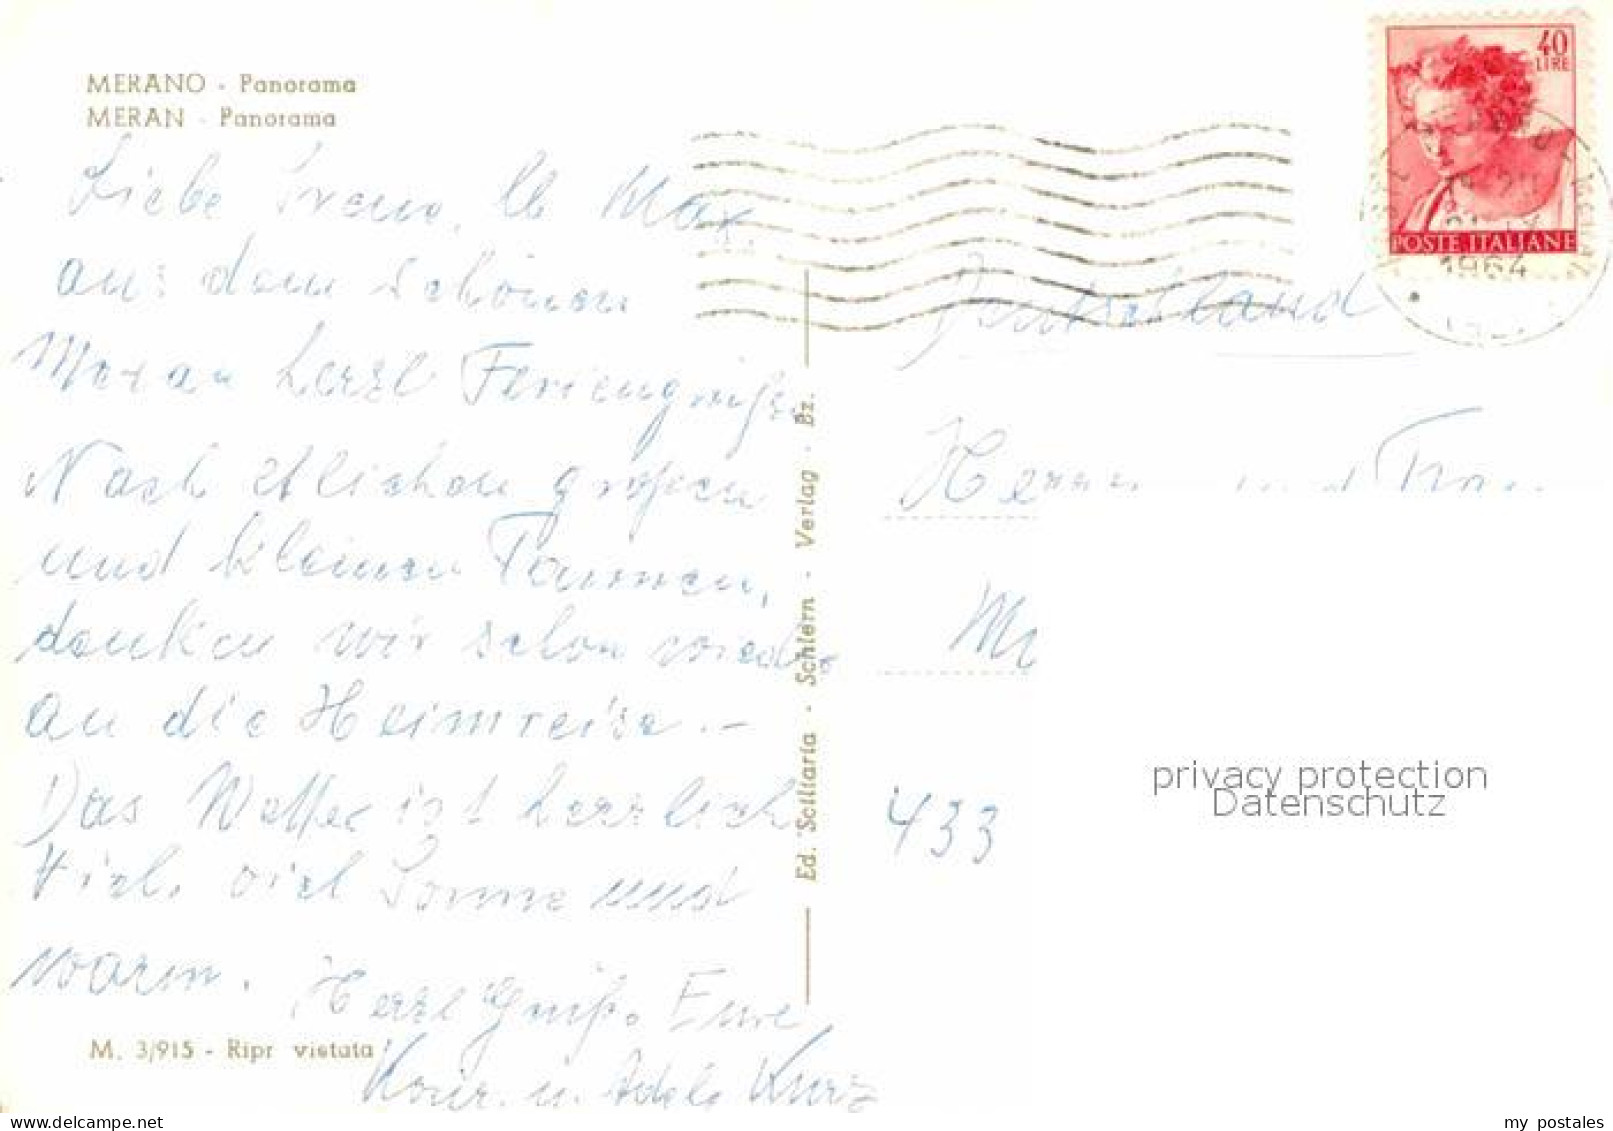 MERANO - Panorama
MERAN - Panorama
Liebe Irene, lb Max,
aus dem schönen
Meran herzl Feriengrüße.
Nach etlichen großen
und kleinen Touren,
denken wir schon wieder
an die Heimreise. -
Das Wetter ist herrlich
viel, viel Sonne und
warm. Herzl Grüße Eure
u. Adele Kurz
M. 3/915 - Ripr vietata
Ed. Sciliaria - Schlern - Verlag - Bz.
40
LIRE
POSTE ITALIANE
1964
Deutschland
Herrn und Frau
433
privacy protection
Datenschutz
my postales